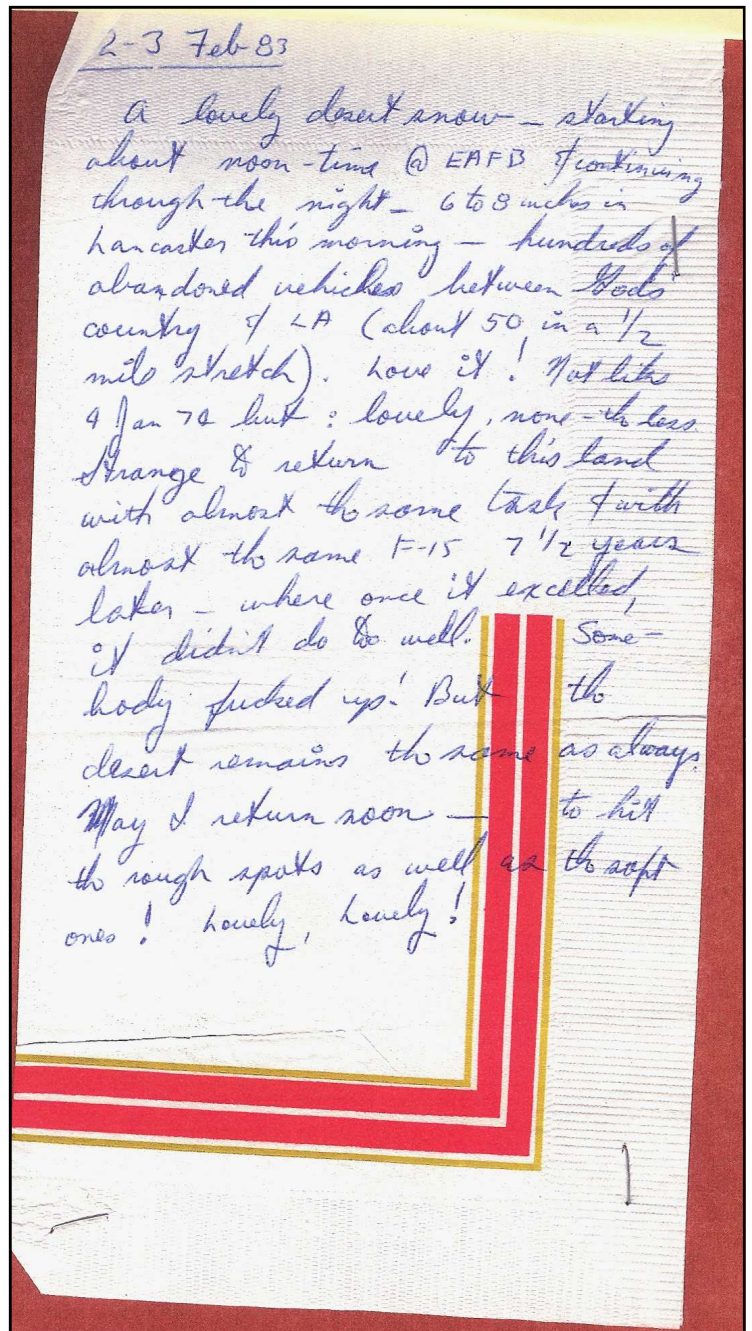 2-3 Feb-83
A lovely desert snow - starting
about noon-time @ EAFB & continuing
through the night - 6 to 8 inches in
Lancaster this morning - hundreds of
abandoned vehicles between God's
country & LA (about 50 in a 1/2
mile stretch). Love it! Not like
4 Jan 74 but : lovely, none-the less
Strange to return to this land
with almost the same task & with
almost the same F-15 7 1/2 years
later - where once it excelled,
it didn't do to well. Some-
body fucked up! But the
desert remains the same as always.
May I return soon - to hit
the rough spots as well as the soft
ones! Lovely, Lovely!